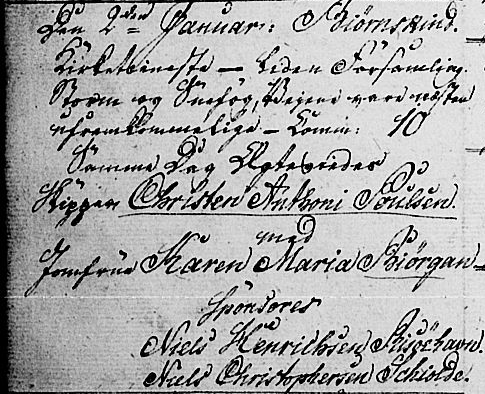 Den 2den Januar: Biörnskind.
Kirketieneste – Liden Forsamling.
Storm og Sneefog, Veyene vare næsten
ufremkommelige – Comm: 10
Samme Dag Egtevviedes
Skipper Christen Anthoni Poulsen
med
Jomfrue Karen Maria Biörgan –
Sponsores
Niels Henrichsen Risøehavn.
Niels Christophersen Schiolde.